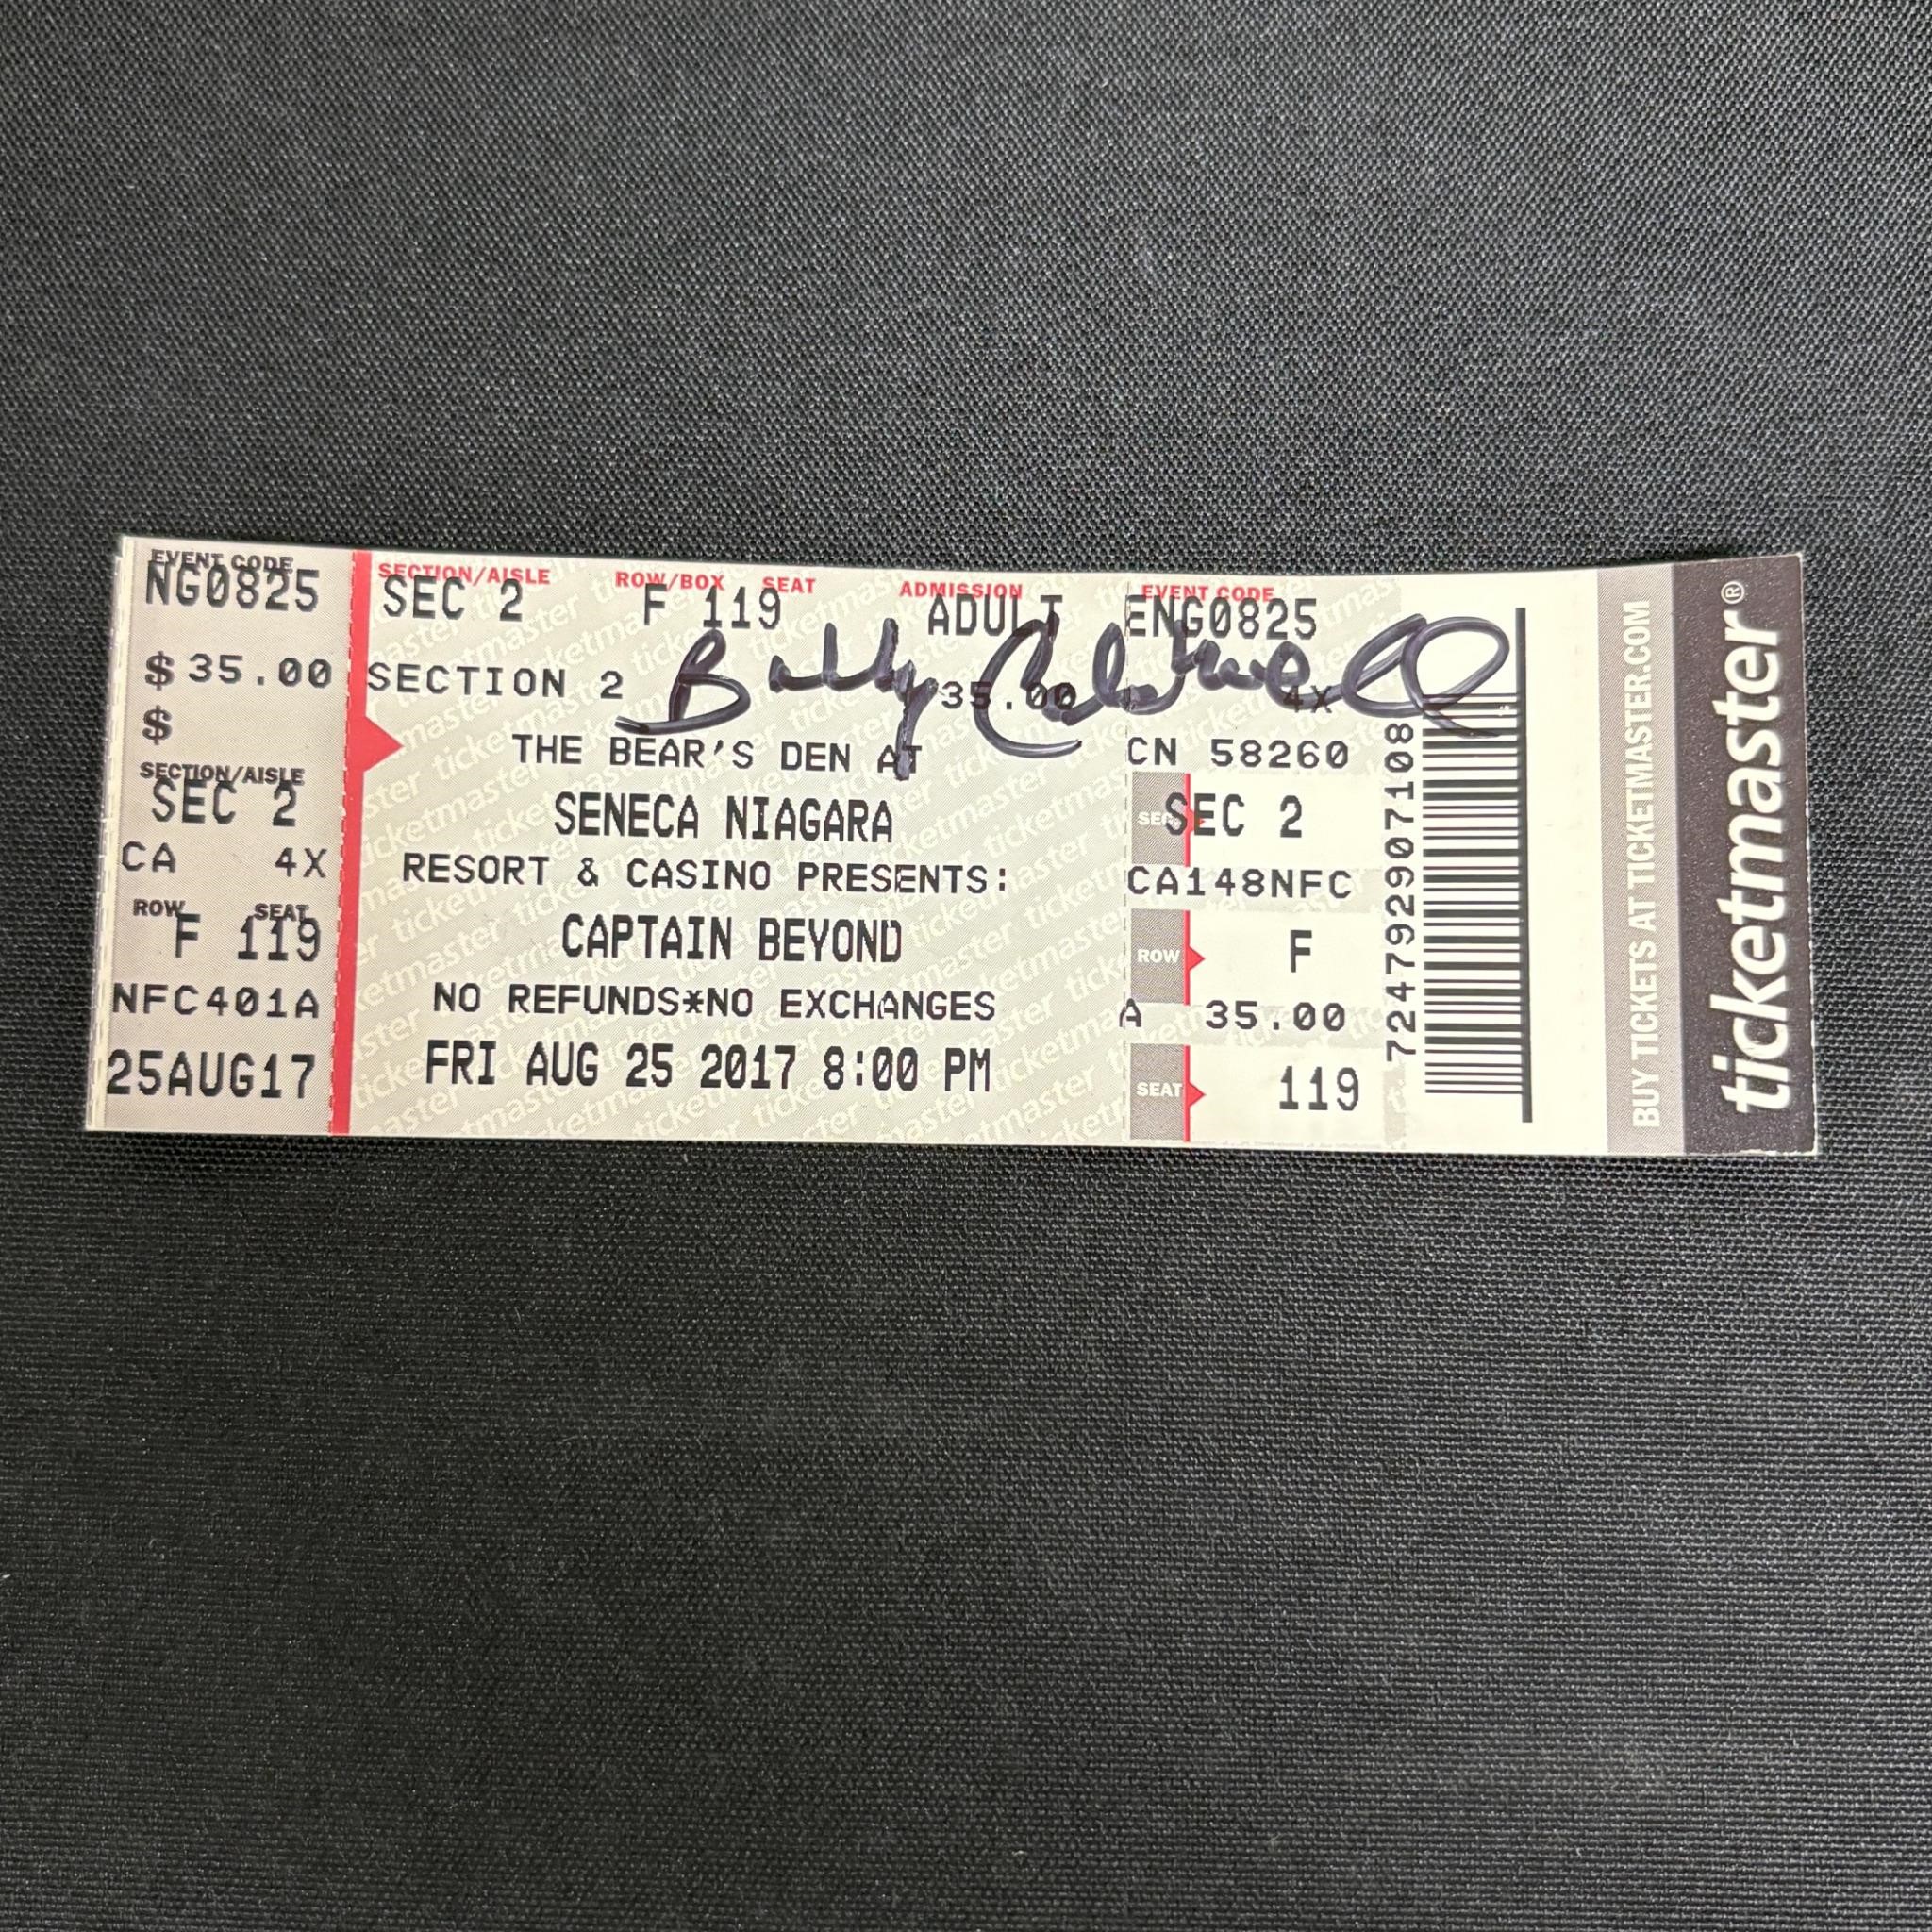 EVENT CODE
NG0825
$ 35.00
$
SECTION/AISLE
SEC 2
CA 4X
ROW SEAT
F 119
NFC401A
25AUG17
SECTION/AISLE ROW/BOX SEAT ADMISSION EVENT CODE
SEC 2 F 119 ADULT ENG0825
SECTION 2 35.00 4X
Billy Caldwell
THE BEAR'S DEN AT
SENECA NIAGARA
RESORT & CASINO PRESENTS:
CAPTAIN BEYOND
NO REFUNDS*NO EXCHANGES
FRI AUG 25 2017 8:00 PM
CN 58260
SEC 2
CA148NFC
ROW F
A 35.00
SEAT 119
724792907108
BUY TICKETS AT TICKETMASTER.COM
ticketmaster®